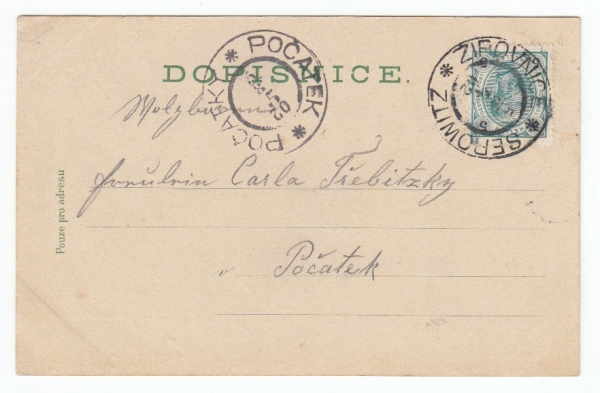 DOPISNICE.
POČÁTEK * POČATKY *
ŽIROVNICE * SEROWITZ *
Fräulein Carla Třebitzky
Počátek
Pouze pro adresu